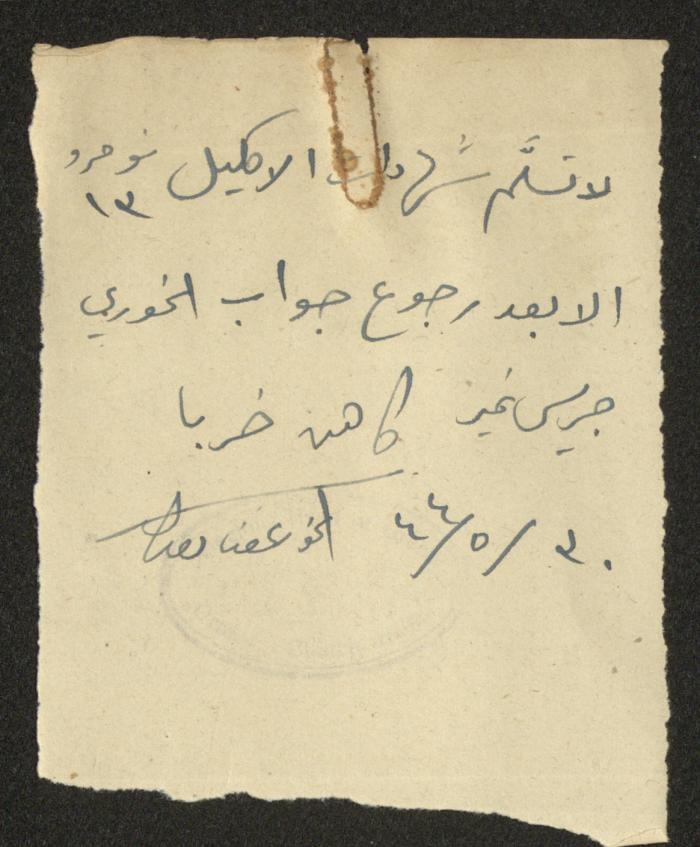 لا تسلَّم شهادات الاكليل نومرو ١٣
الا بعد رجوع جواب الخوري
جريس نمير كاهن خربا
٣٠/٥/٤٤ الخوري